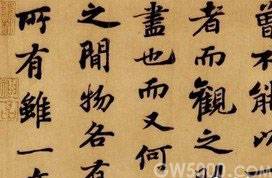 曾不能以
者而觀之
盡也而又何
之間物各有
所有雖一
CW5000.com®